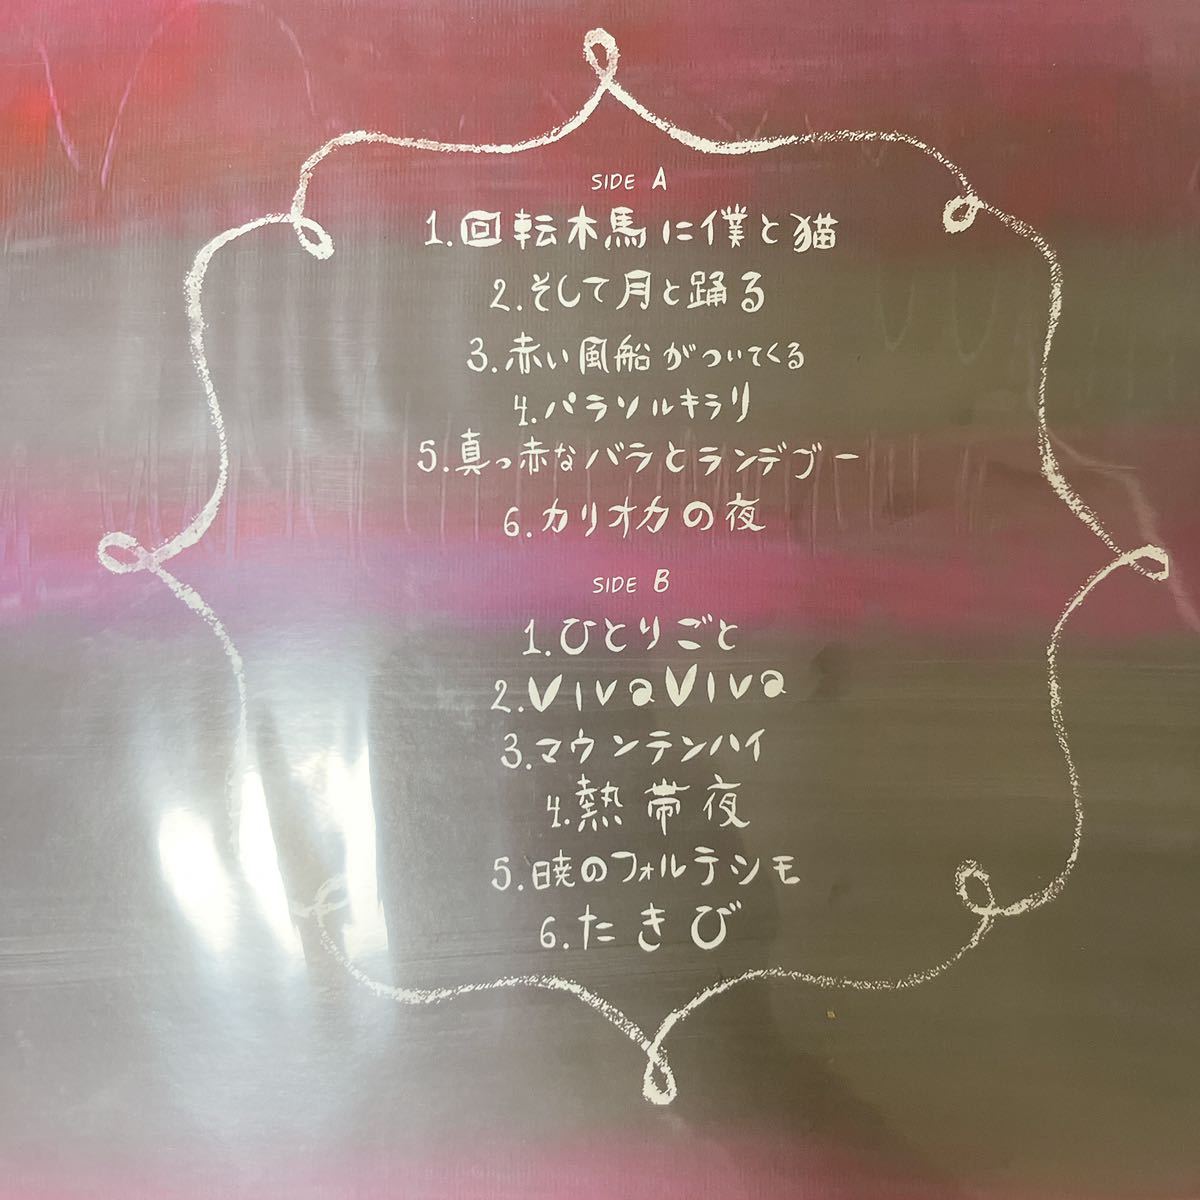 SIDE A
1.回転木馬に僕と猫
2.そして月と踊る
3.赤い風船がついてくる
4.パラソルキラリ
5.真っ赤なバラとランデブー
6.カリオカの夜
SIDE B
1.ひとりごと
2.VivaViva
3.マウンテンハイ
4.熱帯夜
5.暁のフォルテシモ
6.たきび